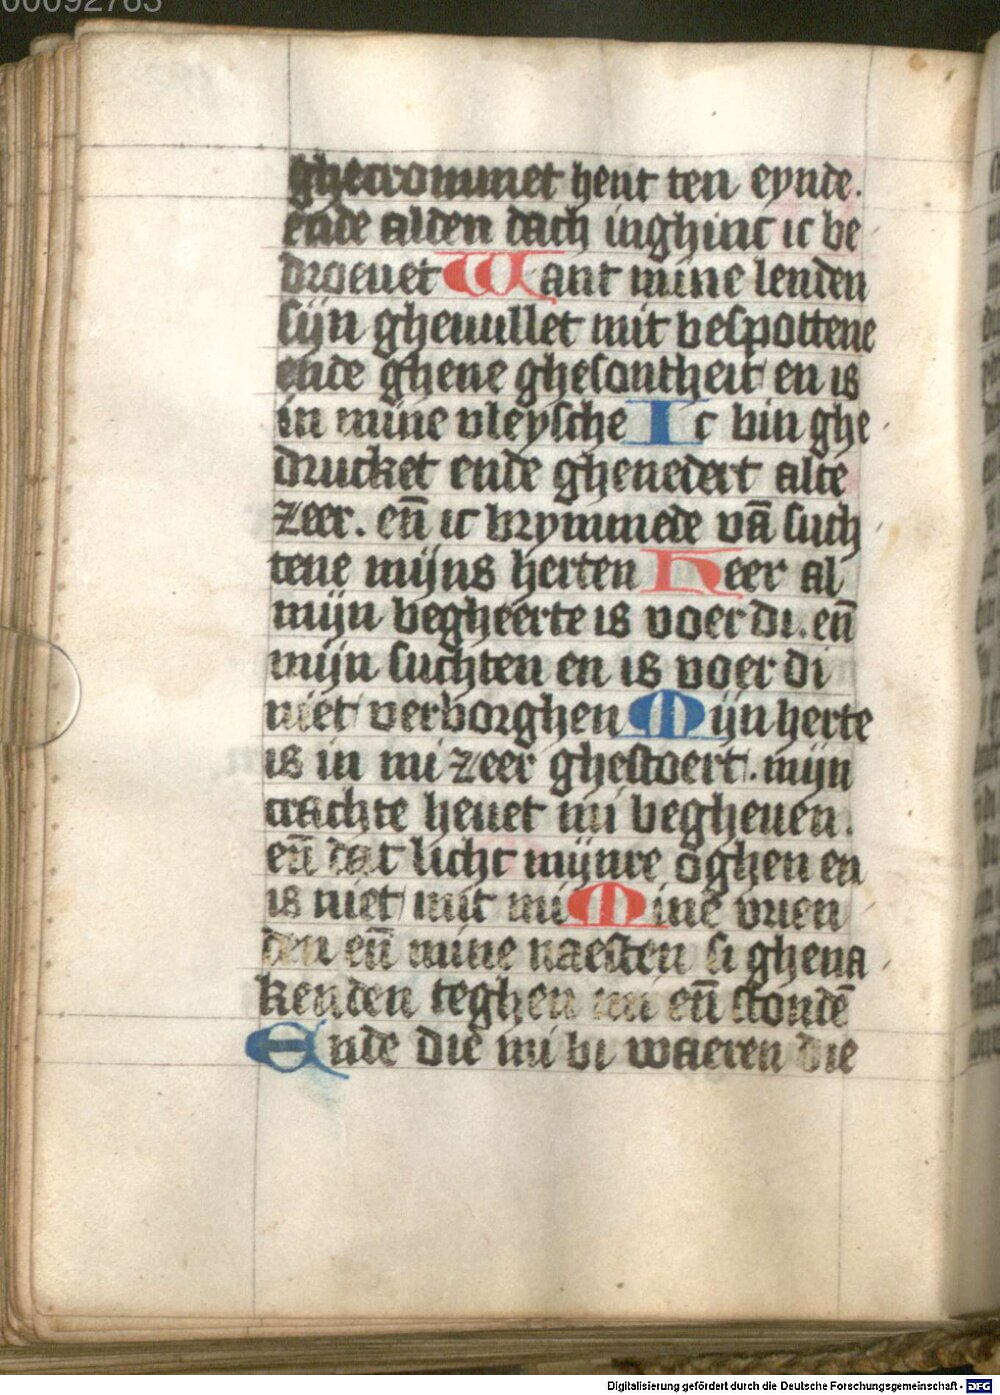 00092763
ghecrommet hent ten eynde.
ende alden dach inghinc ic be
droeuet Want mine lenden
sijn gheuullet mit bespottene
ende ghene ghesontheit en is
in mine vleysche Ic bin ghe
drucket ende ghenedert alte
zeer. en̄ ic brymmede vā such
tene mijns herten Heer al
mijn begheerte is voer di. en̄
mijn suchten en is voer di
niet verborghen Mijn herte
is in mi zeer ghestoert. mijn
crachte heuet mi begheuen.
en̄ dat licht mijnre oghen en
is niet mit mi Mine vrien
den en̄ mine naesten si ghena
kenden teghen mi en̄ stondē
Ende die mi bi waeren die
Digitalisierung gefördert durch die Deutsche Forschungsgemeinschaft - DFG